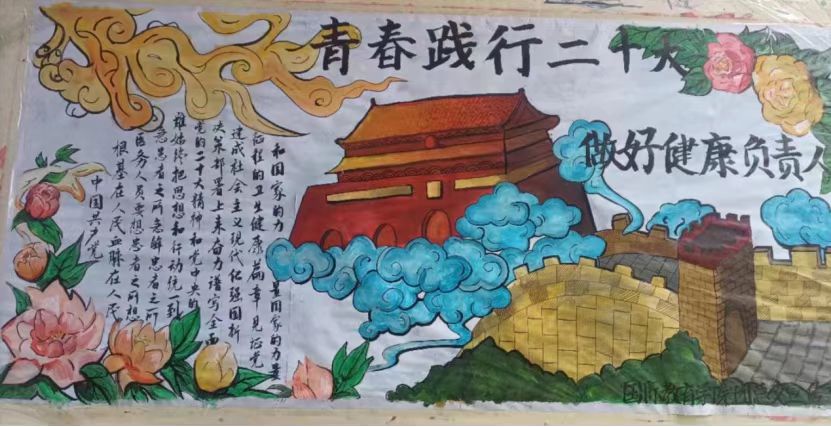 青春践行二十大
做好健康负责人
中国共产党
根基在人民血脉在人民
医务人员要想患者之所想
急患者之所急解患者之所
难始终把思想和行动统一到
党的二十大精神和党中央的
决策部署上来奋力谱写全面
建成社会主义现代化强国新
征程的卫生健康篇章见证党
和国家的力量国家的力量
国际教育学院团总支